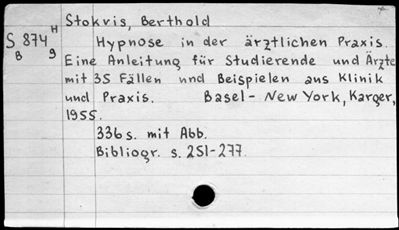 Stokvis, Berthold
S 874 H
B 9
Hypnose in der ärztlichen Praxis.
Eine Anleitung für Studierende und Ärzte
mit 35 Fällen und Beispielen aus Klinik
und Praxis. Basel - New York, Karger,
1955.
336 s. mit Abb.
Bibliogr. s. 251-277.